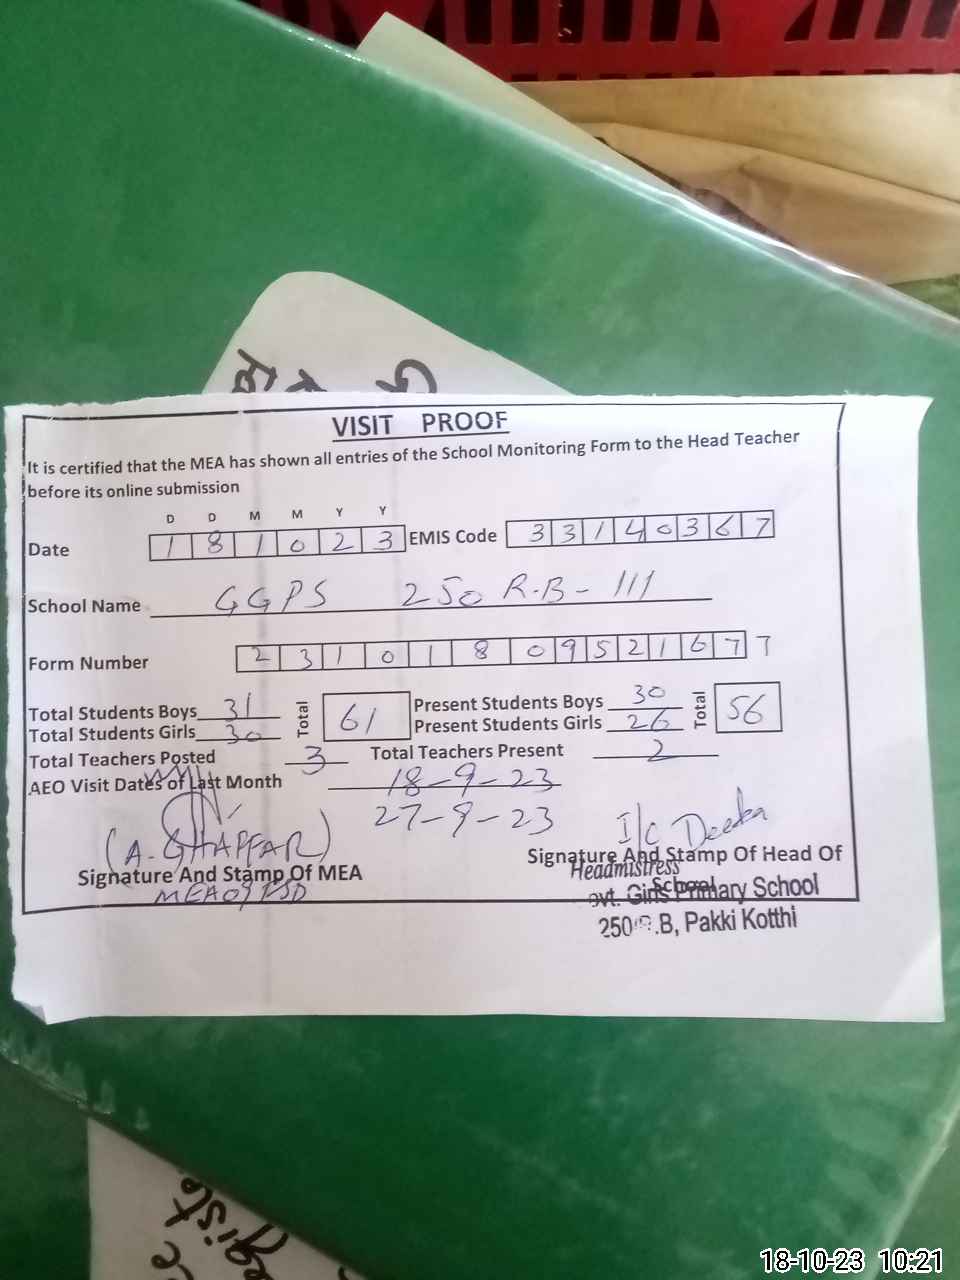 VISIT PROOF
It is certified that the MEA has shown all entries of the School Monitoring Form to the Head Teacher
before its online submission
D D M M Y Y
Date 1 8 1 0 2 3 EMIS Code 3 3 1 4 0 3 6 7
School Name GGPS 250 R.B - III
Form Number 2 3 1 0 1 8 0 9 5 2 1 6 7 7
Total Students Boys 31 Total 61 Present Students Boys 30 Total 56
Total Students Girls 30 Present Students Girls 26
Total Teachers Posted 3 Total Teachers Present 2
AEO Visit Dates of Last Month 18-9-23
27-9-23
(A. GHAFFAR) I/C
Signature And Stamp Of MEA Signature And Stamp Of Head Of
School
MEA09 FSD
Headmistress
ovt. Girls Primary School
250 .B, Pakki Kotthi
18-10-23 10:21